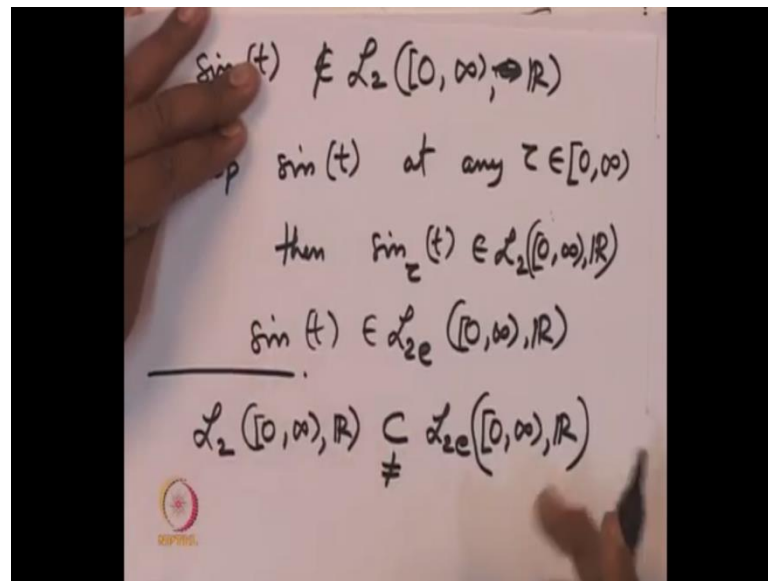 sin(t) ∉ ℒ₂([0, ∞), ℝ)
sin(t) at any τ ∈ [0, ∞)
then sin_τ(t) ∈ ℒ₂([0, ∞), ℝ)
sin(t) ∈ ℒ₂ₑ([0, ∞), ℝ)
ℒ₂([0, ∞), ℝ) ⊊ ℒ₂ₑ([0, ∞), ℝ)
NPTEL